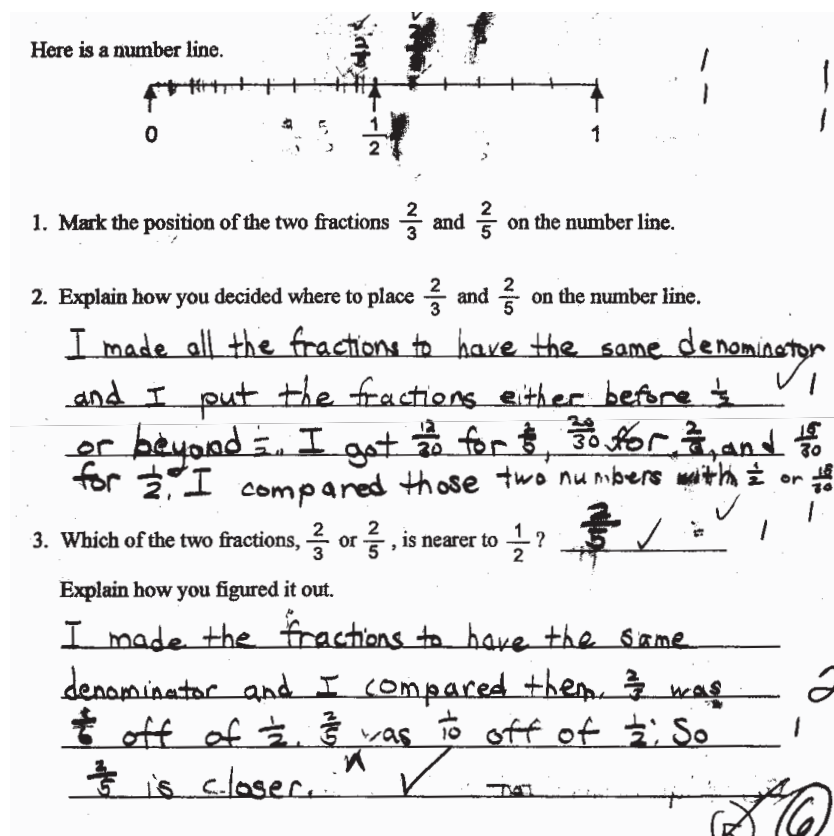 Here is a number line.
0
1/2
1
1. Mark the position of the two fractions 2/3 and 2/5 on the number line.
2. Explain how you decided where to place 2/3 and 2/5 on the number line.
I made all the fractions to have the same denominator
and I put the fractions either before 1/2
or beyond 1/2. I got 12/30 for 2/5, 20/30 for 2/3, and 15/30
for 1/2. I compared those two numbers with 1/2 or 15/30
3. Which of the two fractions, 2/3 or 2/5, is nearer to 1/2? 2/5
Explain how you figured it out.
I made the fractions to have the same
denominator and I compared them. 2/3 was
off of 1/2. 2/5 was 1/10 off of 1/2. So
2/5 is closer.